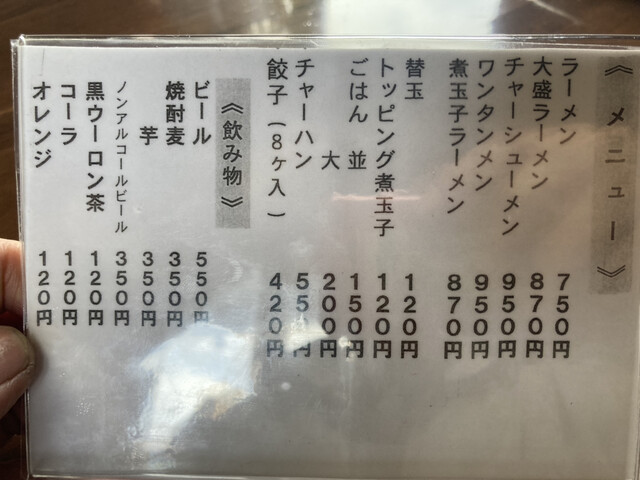 《メニュー》
ラーメン 750円
大盛ラーメン 870円
チャーシューメン 950円
ワンタンメン 950円
煮玉子ラーメン 870円
替玉 120円
トッピング煮玉子 120円
ごはん 並 150円
大 200円
チャーハン 550円
餃子(8ヶ入) 420円
《飲み物》
ビール 550円
焼酎麦 350円
芋 350円
ノンアルコールビール 350円
黒ウーロン茶 120円
コーラ 120円
オレンジ 120円